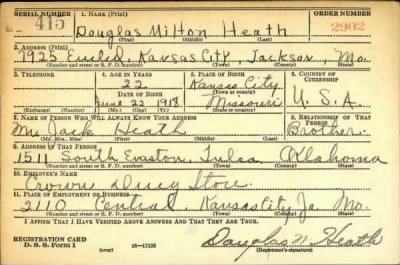 SERIAL NUMBER 1. NAME (Print) ORDER NUMBER
415 Douglas Milton Heath 2902
(First) (Middle) (Last)
2. ADDRESS (Print)
7925 Euclid, Kansas City, Jackson, Mo.
(Number and street or R. F. D. number) (Town) (County) (State)
3. TELEPHONE 4. AGE IN YEARS 5. PLACE OF BIRTH 6. COUNTRY OF CITIZENSHIP
22 Kansas City
DATE OF BIRTH (Town or county)
June 22 1918 Missouri U. S. A.
(Exchange) (Number) (Mo.) (Day) (Yr.) (State or country)
7. NAME OF PERSON WHO WILL ALWAYS KNOW YOUR ADDRESS 8. RELATIONSHIP OF THAT PERSON
Mr. Jack Heath Brother.
(Mr., Mrs., Miss) (First) (Middle) (Last)
9. ADDRESS OF THAT PERSON
1511 South Evaston, Tulsa Oklahoma
(Number and street or R. F. D. number) (Town) (County) (State)
10. EMPLOYER'S NAME
Crown Drug Store
11. PLACE OF EMPLOYMENT OR BUSINESS
2110 Central, Kansas City, Ja Mo.
(Number and street or R. F. D. number) (Town) (County) (State)
I AFFIRM THAT I HAVE VERIFIED ABOVE ANSWERS AND THAT THEY ARE TRUE.
REGISTRATION CARD
D. S. S. Form 1 16-17105 Douglas M Heath
(Registrant's signature)